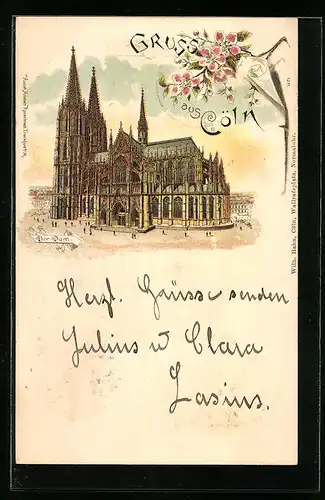 Gruss
aus
Cöln
Der Dom.
Wilh. Hahn, Cöln, Wallrafsplatz,
Herzl. Grüsse senden
Julius u Clara
Lasius.